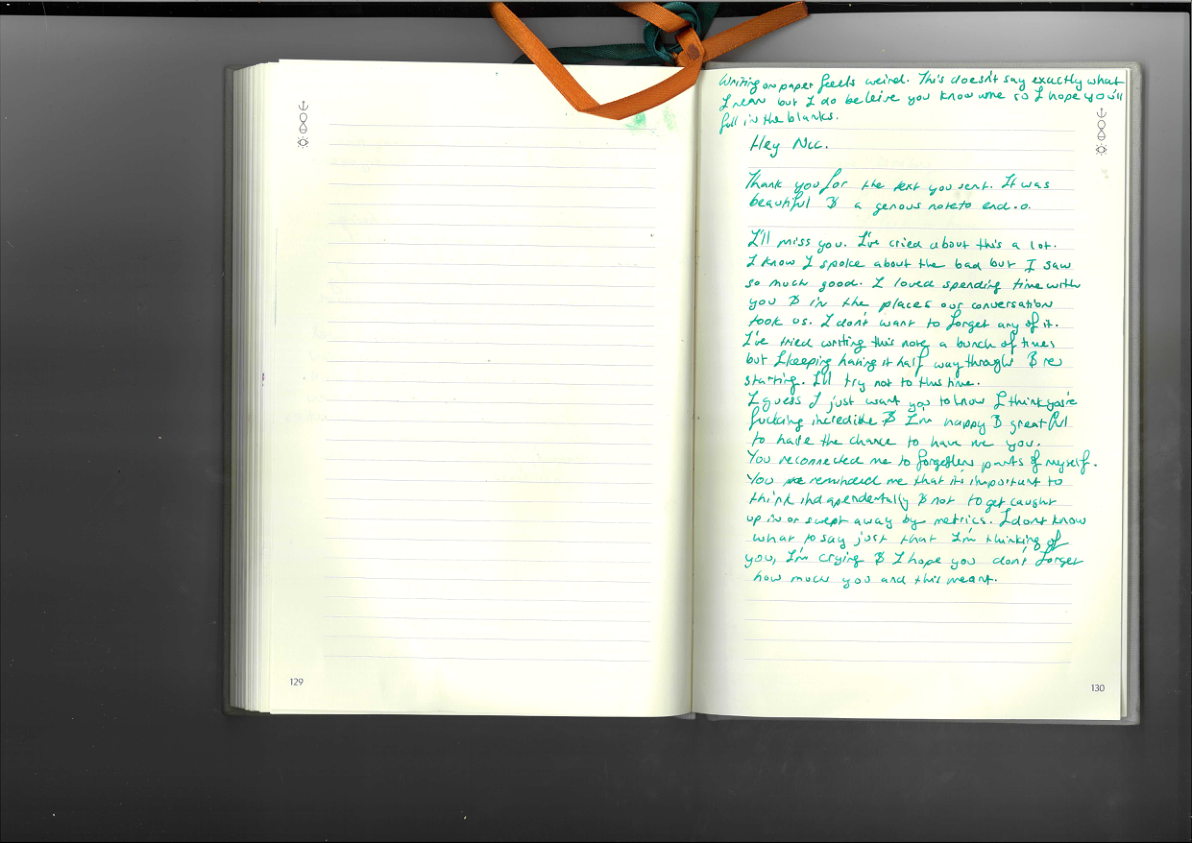 Writing on paper feels weird. This doesn't say exactly what
I mean but I do beleive you know me so I hope you'll
fill in the blanks.
Hey Nic.
Thank you for the text you sent. It was
beautiful & a genous note to end.o.
I'll miss you. I've cried about this a lot.
I know I spoke about the bad but I saw
so much good. I loved spending time with
you & in the places our conversation
took us. I don't want to forget any of it.
I've tried writing this note a bunch of times
but I keeping hating it half way through & re
starting. I'll try not to this time.
I guess I just want you to know I think you're
fucking incredible & I'm happy & greatful
to have the chance to have me you.
You reconnected me to forgotten parts of myself.
You reminded me that it's important to
think indapendentally & not to get caught
up in or swept away by metrics. I dont know
what to say just that I'm thinking of
you, I'm crying & I hope you don't forget
how much you and this meant.
129
130